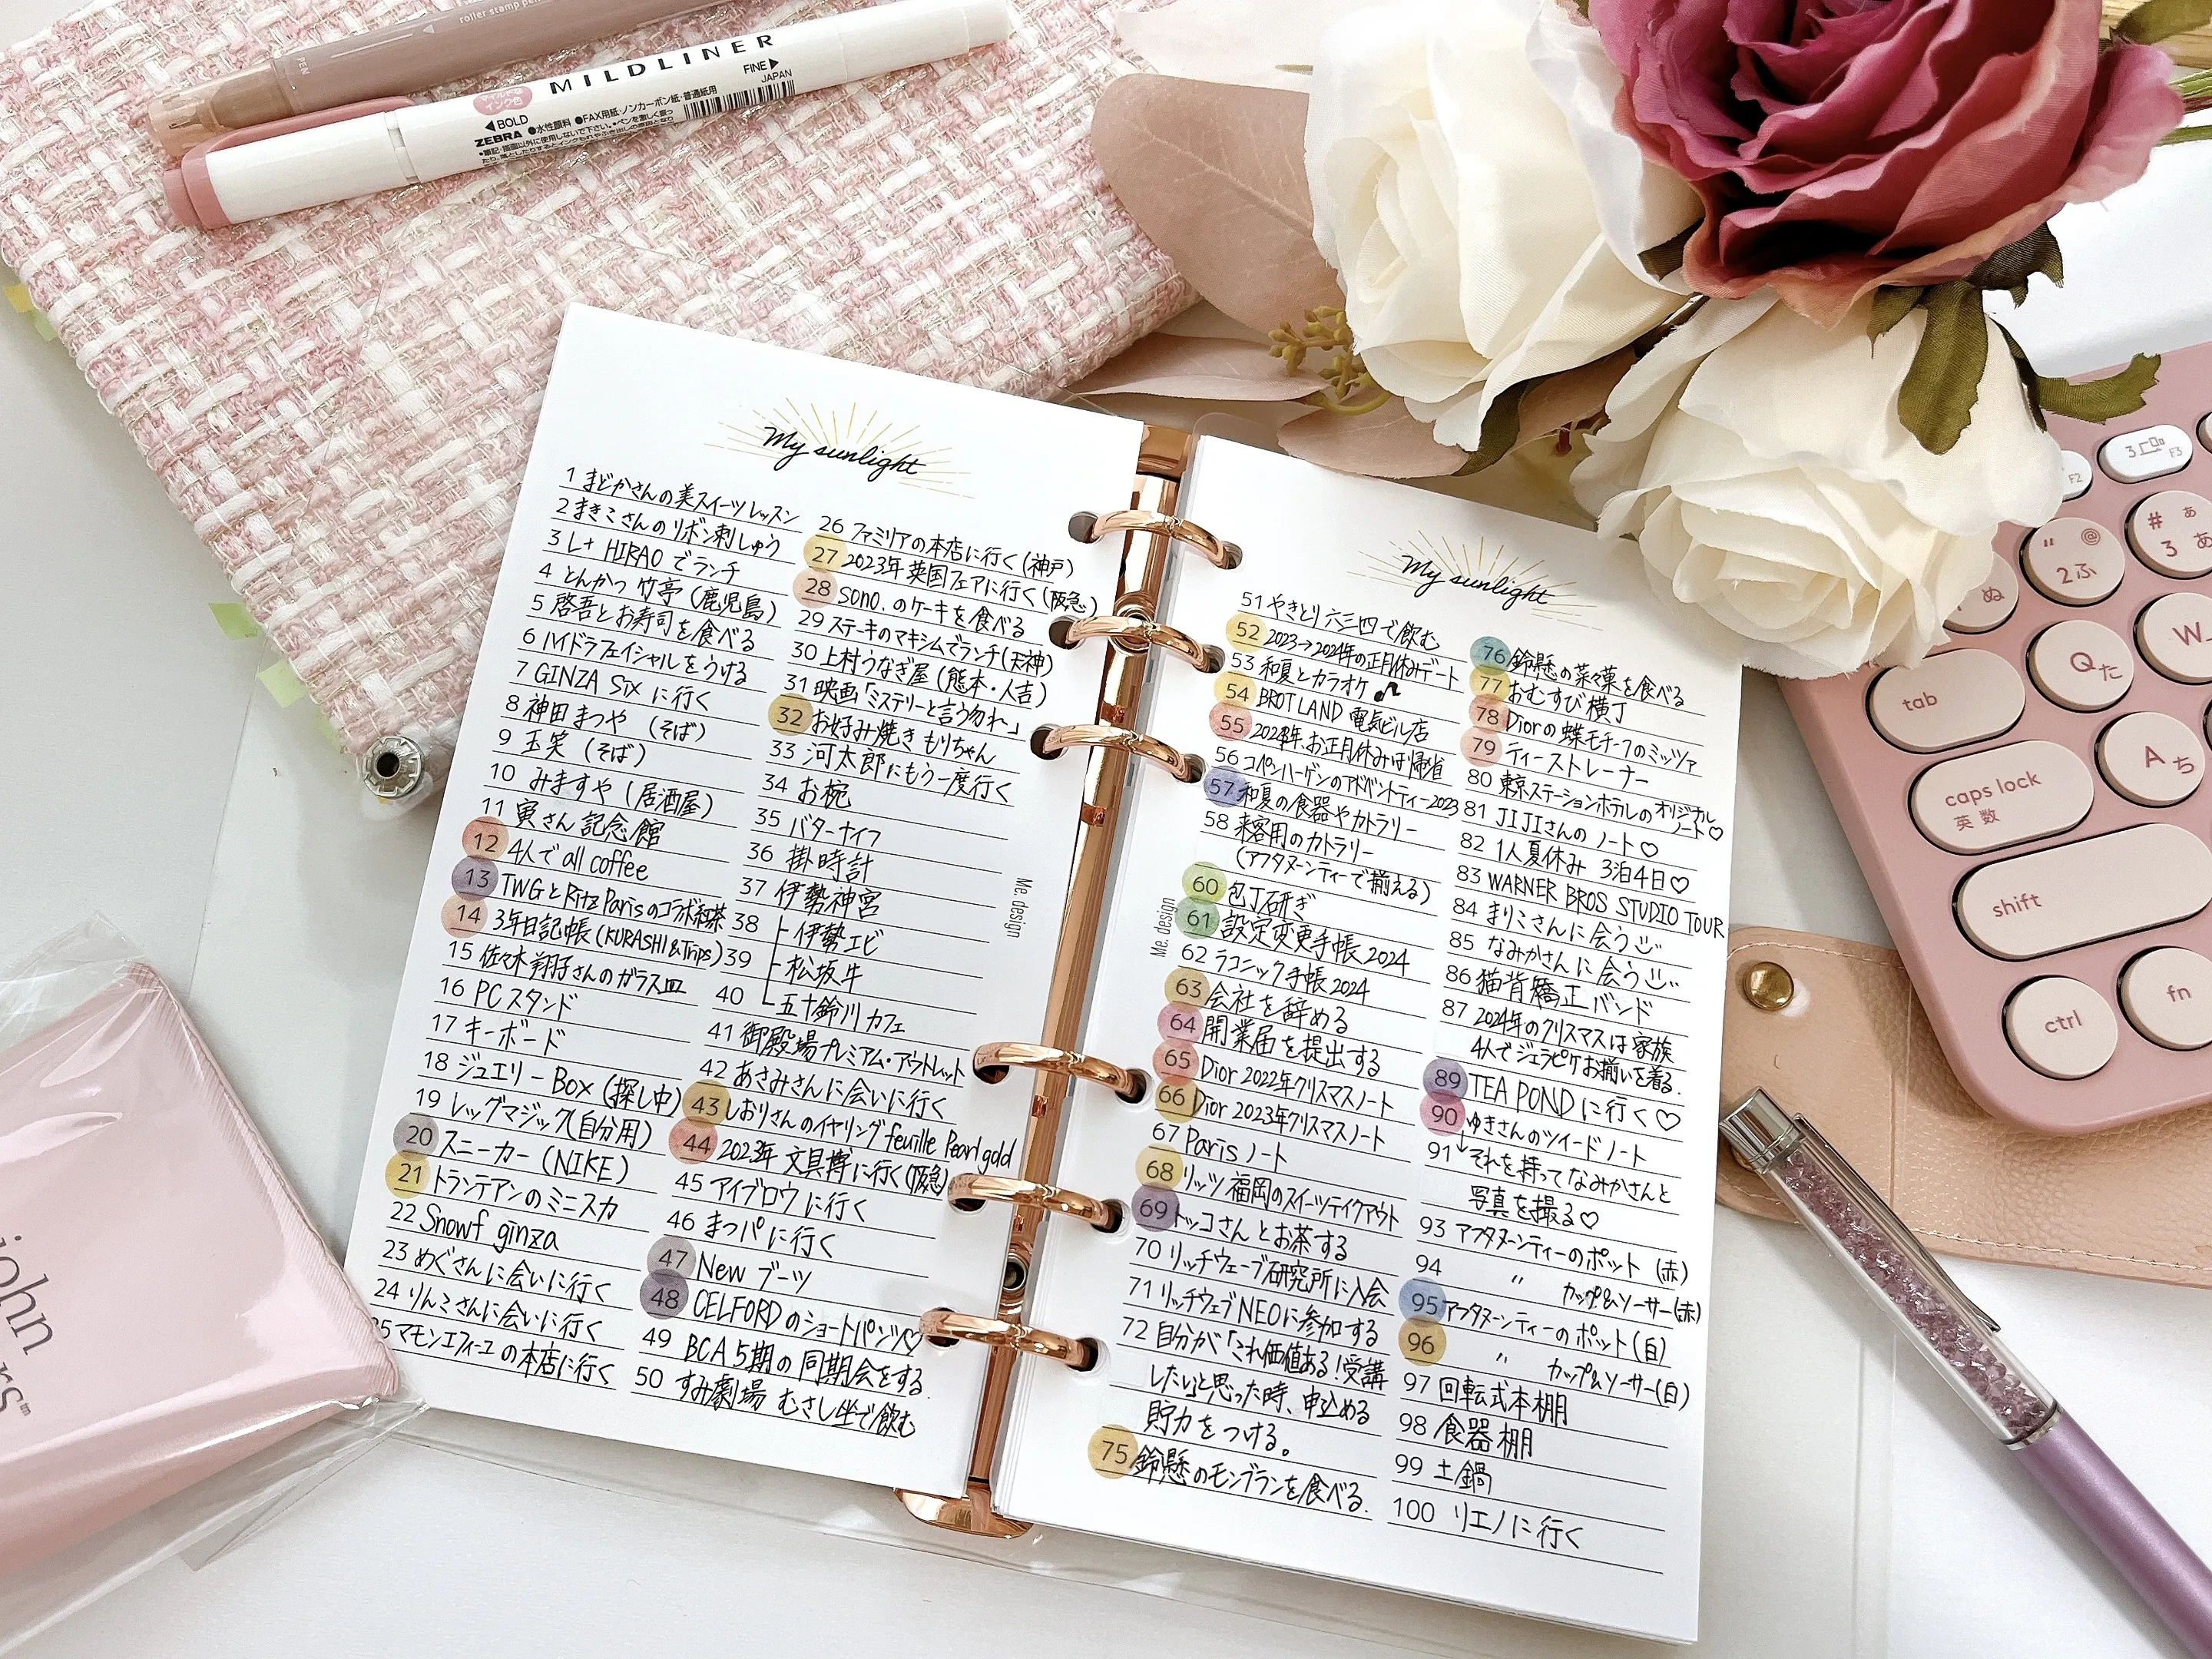 roller stamp pen
PEN
MILDLINER
マイルドな
インク色
FINE▶
JAPAN
◀BOLD
ZEBRA ●水性顔料 ●FAX用紙・ノンカーボン紙・普通紙用
My sunlight
1 まどかさんの美スイーツレッスン
2 まきこさんのリボン刺しゅう
3 L+ HIRAO でランチ
4 とんかつ 竹亭 (鹿児島)
5 啓吾とお寿司を食べる
6 ハイドラフェイシャルをうける
7 GINZA SIX に行く
8 神田まつや (そば)
9 玉笑 (そば)
10 みますや (居酒屋)
11 寅さん記念館
12 4人で all coffee
13 TWGとRitz Parisのコラボ紅茶
14 3年日記帳 (KURASHI&Trips)
15 佐々木翔子さんのガラス皿
16 PCスタンド
17 キーボード
18 ジュエリーBox (探し中)
19 レッグマジック(自分用)
20 スニーカー (NIKE)
21 トランテアンのミニスカ
22 Snowf ginza
23 めぐさんに会いに行く
24 りんこさんに会いに行く
25 マモンエフィーユの本店に行く
26 ファミリアの本店に行く (神戸)
27 2023年 英国フェアに行く (阪急)
28 sono. のケーキを食べる
29 ステーキのマキシムでランチ(天神)
30 上村うなぎ屋 (熊本・人吉)
31 映画「ミステリーと言う勿れ」
32 お好み焼き もりちゃん
33 河太郎にもう一度行く
34 お椀
35 バターナイフ
36 掛時計
37 伊勢神宮
38 ├ 伊勢エビ
39 ├ 松坂牛
40 └ 五十鈴川カフェ
41 御殿場プレミアム・アウトレット
42 あさみさんに会いに行く
43 しおりさんのイヤリング feuille Pearl gold
44 2023年 文具博に行く(阪急)
45 アイブロウに行く
46 まつパに行く
47 New ブーツ
48 CELFORDのショートパンツ♡
49 BCA 5期の同期会をする.
50 すみ劇場 むさし坐で飲む
Me. design
My sunlight
51 やきとり六三四で飲む
52 2023→2024年の正月休みデート
53 和夏とカラオケ♫
54 BROT LAND 電気ビル店
55 2024年.お正月休みは帰省
56 コペンハーゲンのアドベントティー2023
57 和夏の食器やカトラリー
58 来客用のカトラリー
(アフタヌーンティーで揃える)
60 包丁研ぎ
61 設定変更手帳2024
62 ラコニック手帳2024
63 会社を辞める
64 開業届を提出する
65 Dior 2022年クリスマスノート
66 Dior 2023年クリスマスノート
67 Paris ノート
68 リッツ福岡のスイーツテイクアウト
69 トッコさんとお茶する
70 リッチウェーブ研究所に入会
71 リッチウェブNEOに参加する
72 自分が「これ価値ある!受講
したい」と思った時、申込める
貯力をつける。
75 鈴懸のモンブランを食べる.
Me. design
76 鈴懸の菜々菓を食べる
77 おむすび横丁
78 Diorの蝶モチーフのミッツァ
79 ティーストレーナー
80 東京ステーションホテルのオリジナル
ノート♡
81 JIJIさんのノート♡
82 1人夏休み 3泊4日♡
83 WARNER BROS STUDIO TOUR
84 まりこさんに会う
85 なみかさんに会う
86 猫背矯正バンド
87 2024年のクリスマスは家族
4人でジェラピケお揃いを着る.
89 TEA PONDに行く♡
90 ゆきさんのツイードノート
91 ↓それを持ってなみかさんと
写真を撮る♡
93 アフタヌーンティーのポット (赤)
94 〃 カップ&ソーサー(赤)
95 アフタヌーンティーのポット(白)
96 〃 カップ&ソーサー(白)
97 回転式本棚
98 食器棚
99 土鍋
100 リエノに行く
F2
3
F3
ぬ
" @
2 ふ
# ぁ
3 あ
tab
Q た
W
caps lock
英数
A ち
shift
ctrl
fn
john